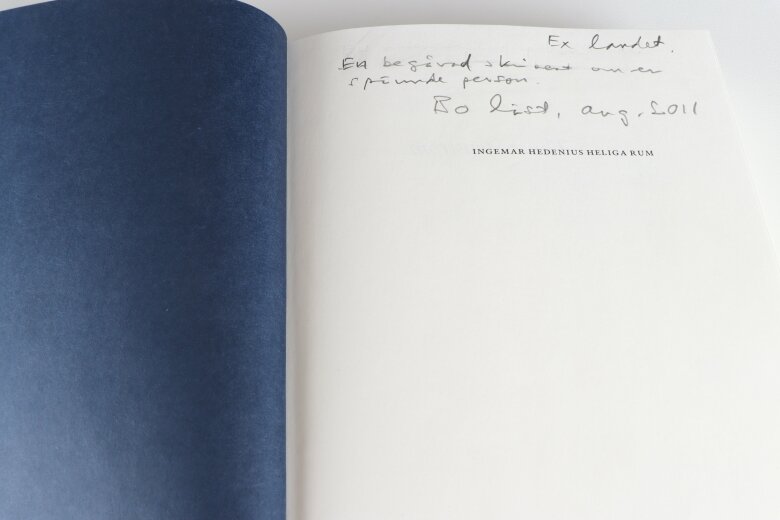 Ex landet.
En begåvad skribent om en
spännande person.
Bo aug. 2011
INGEMAR HEDENIUS HELIGA RUM